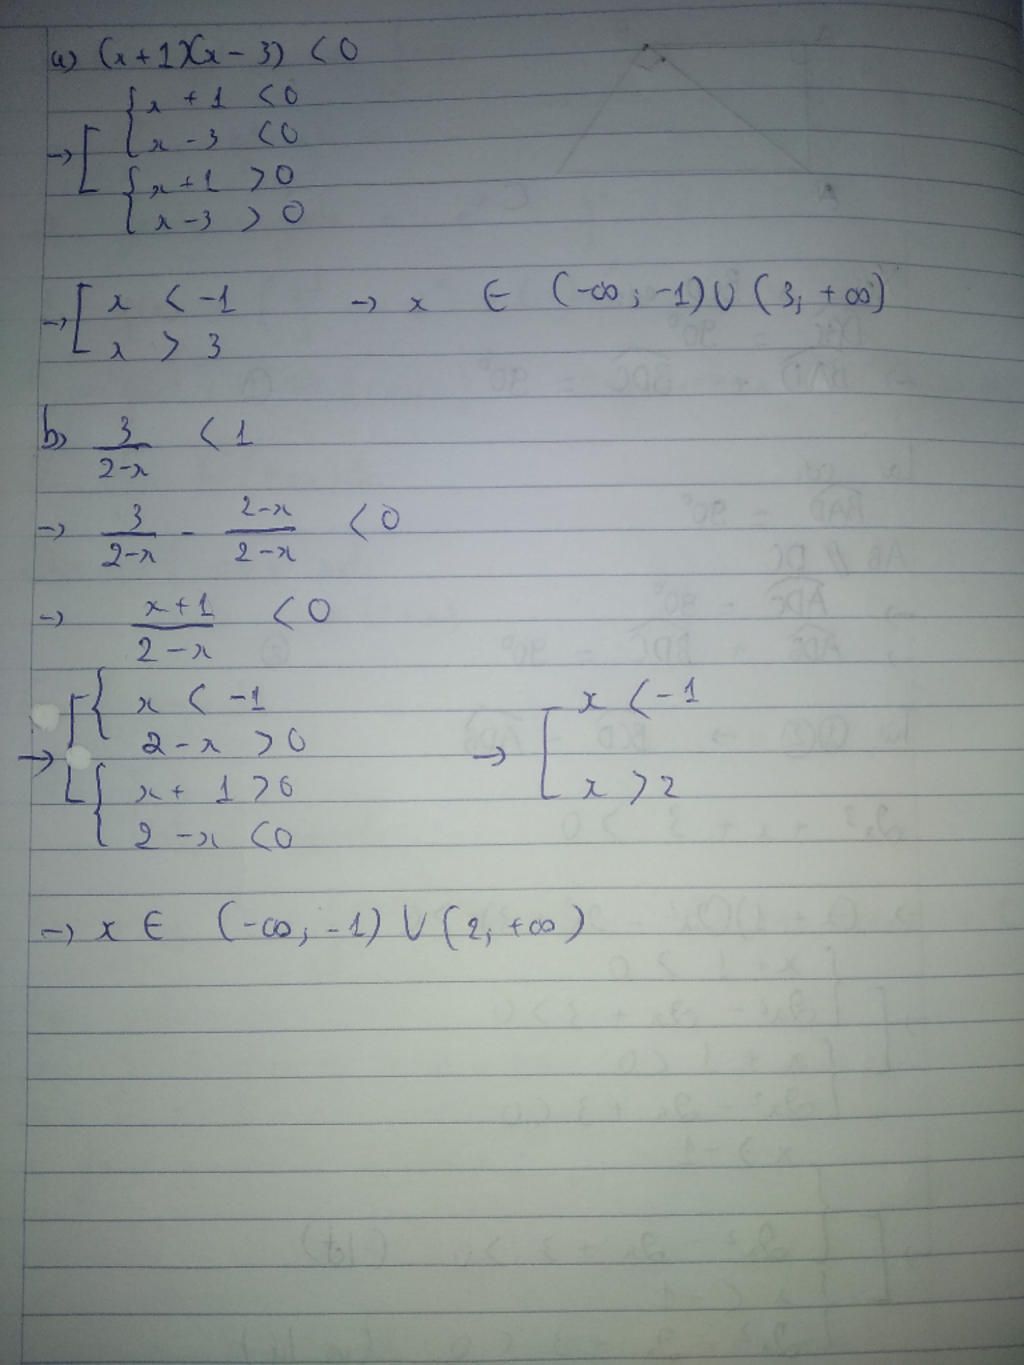 a) (x+1)(x-3) < 0
x + 1 < 0
→ x - 3 < 0
x + 1 > 0
x - 3 > 0
→ x < -1 → x ∈ (-∞; -1) ∪ (3; +∞)
x > 3
b) 3/(2-x) < 1
→ 3/(2-x) - (2-x)/(2-x) < 0
→ (x+1)/(2-x) < 0
x < -1 x < -1
→ 2-x > 0 →
x + 1 > 0 x > 2
2-x < 0
→ x ∈ (-∞; -1) ∪ (2; +∞)